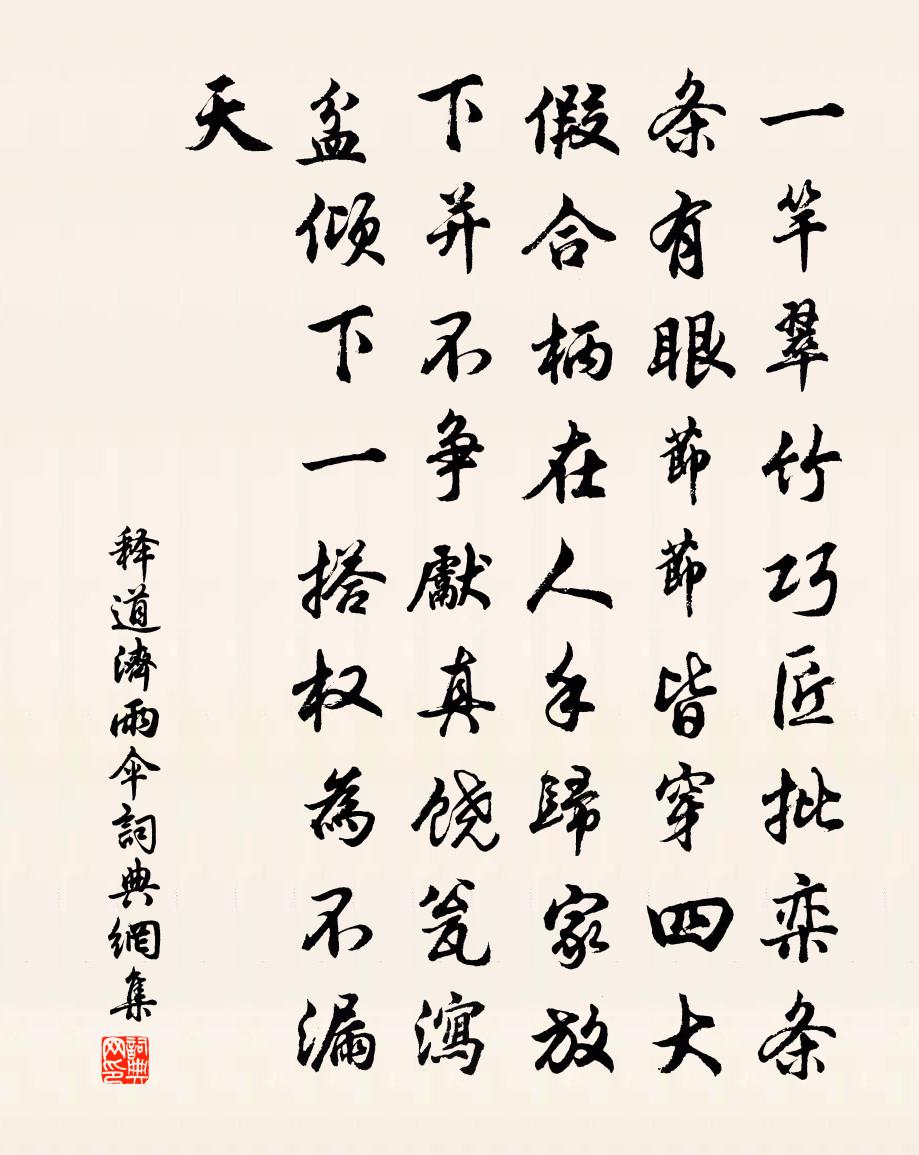 一竿翠竹巧匠批栾条
条有眼節節皆穿四大
假合柄在人手歸家放
下并不争獻真饶瓮瀉
盆倾下一搭权為不漏
天
释道濟雨伞詞典網集
詞典网印